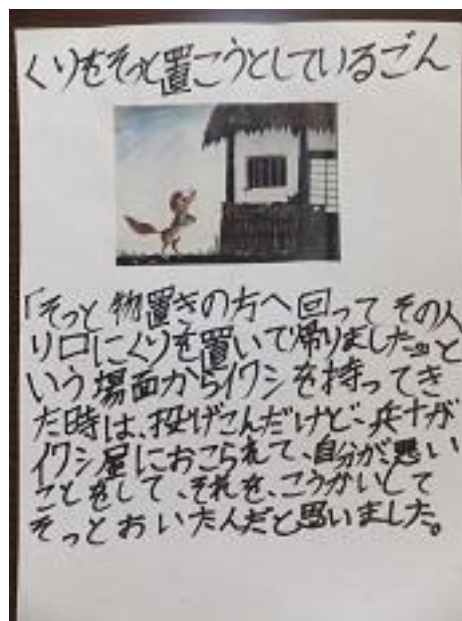 くりをそっと置こうとしているごん
「そっと物置きの方へ回ってその入
り口にくりを置いて帰りました。」と
いう場面からイワシを持ってき
た時は、投げこんだけど、兵十が
イワシ屋におこられて、自分が、悪い
ことをして、それを、こうかいして
そっとおいたんだと思いました。